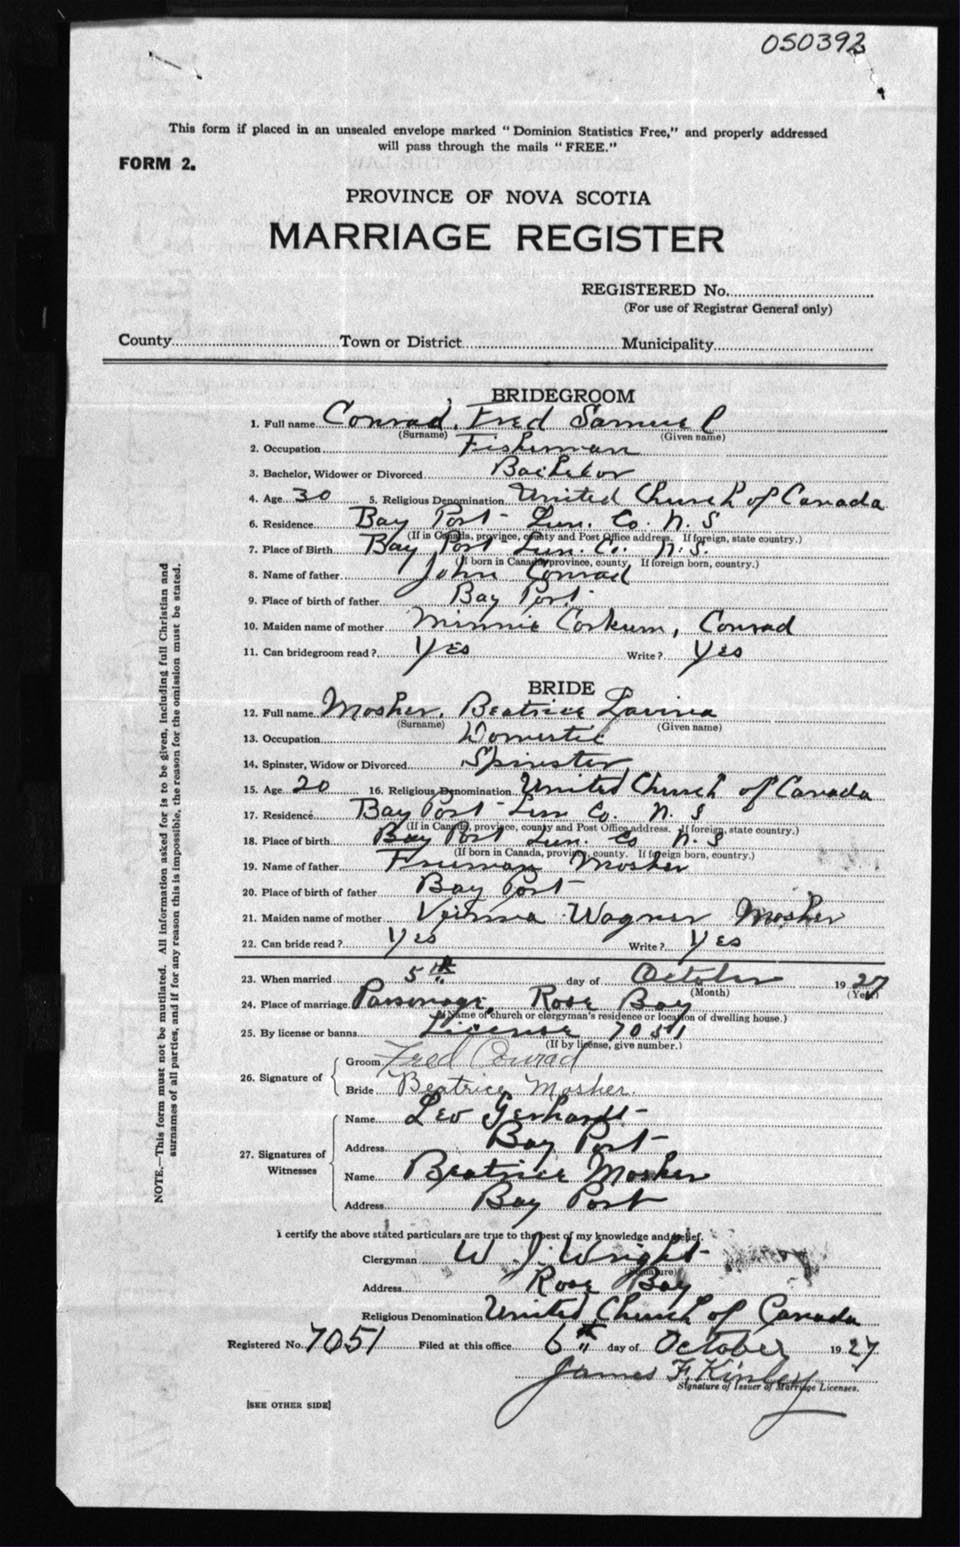 050392
This form if placed in an unsealed envelope marked "Dominion Statistics Free," and properly addressed
will pass through the mails "FREE."
FORM 2.
PROVINCE OF NOVA SCOTIA
MARRIAGE REGISTER
REGISTERED No.
(For use of Registrar General only)
County Town or District Municipality
BRIDEGROOM
1. Full name Conrad, Fred Samuel
(Surname) (Given name)
2. Occupation Fisherman
3. Bachelor, Widower or Divorced Bachelor
4. Age 30 5. Religious Denomination United Church of Canada
6. Residence Bay Port Lun. Co. N. S
(If in Canada, province, county and Post Office address. If foreign, state country.)
7. Place of Birth Bay Port Lun. Co. N. S.
(If born in Canada, province, county. If foreign born, country.)
8. Name of father John Conrad
9. Place of birth of father Bay Port
10. Maiden name of mother Minnie Corkum, Conrad
11. Can bridegroom read? Yes Write? Yes
BRIDE
12. Full name Mosher, Beatrice Lavina
(Surname) (Given name)
13. Occupation Domestic
14. Spinster, Widow or Divorced Spinster
15. Age 20 16. Religious Denomination United Church of Canada
17. Residence Bay Port Lun Co. N. S
(If in Canada, province, county and Post Office address. If foreign, state country.)
18. Place of birth Bay Port Lun. Co N. S
(If born in Canada, province, county. If foreign born, country.)
19. Name of father Freeman Mosher
20. Place of birth of father Bay Port
21. Maiden name of mother Wagner Mosher
22. Can bride read? Yes Write? Yes
23. When married 5th day of October 1927
(Month) (Year)
24. Place of marriage Parsonage, Rose Bay
(Name of church or clergyman's residence or location of dwelling house.)
25. By license or banns License 7051
(If by license, give number.)
26. Signature of
Groom Fred Conrad
Bride Beatrice Mosher.
27. Signatures of Witnesses
Name Leo Gerhardt
Address Bay Port
Name Beatrice Mosher
Address Bay Port
I certify the above stated particulars are true to the best of my knowledge and belief.
Clergyman W. J. Wright
(Signature)
Address Rose Bay
Religious Denomination United Church of Canada
Registered No. 7051 Filed at this office 6th day of October 1927
James F. Kinley
Signature of Issuer of Marriage Licenses.
[SEE OTHER SIDE]
NOTE.—This form must not be mutilated. All information asked for is to be given, including full Christian and
surnames of all parties, and if for any reason this is impossible, the reason for the omission must be stated.